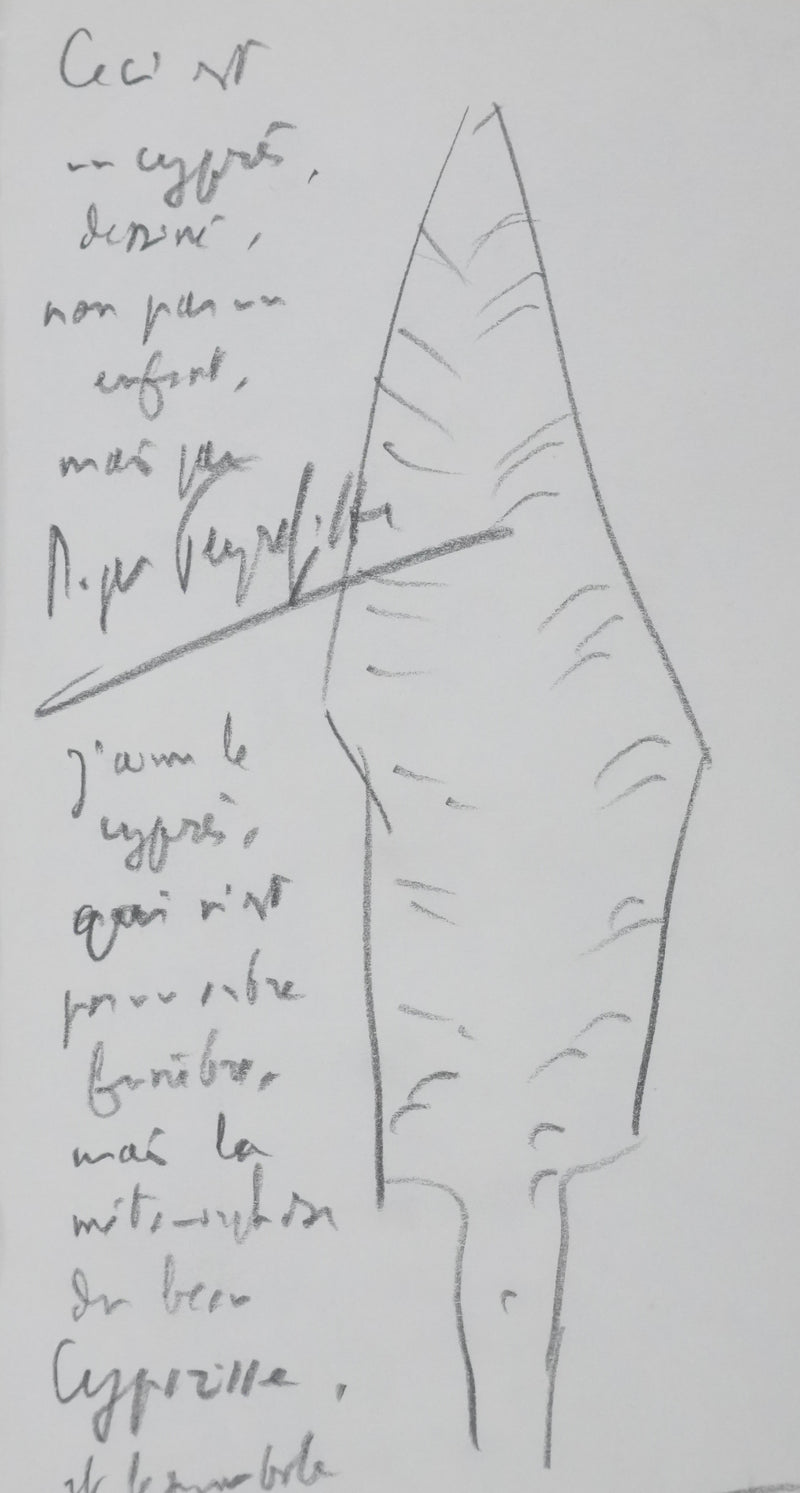 Ceci est
un cyprès,
dessiné,
non par un
enfant,
mais par
Roger Peyrefitte
J'aime le
cyprès,
qui n'est
pas un arbre
funèbre,
mais la
métamorphose
du beau
Cyparisse,
et le symbole